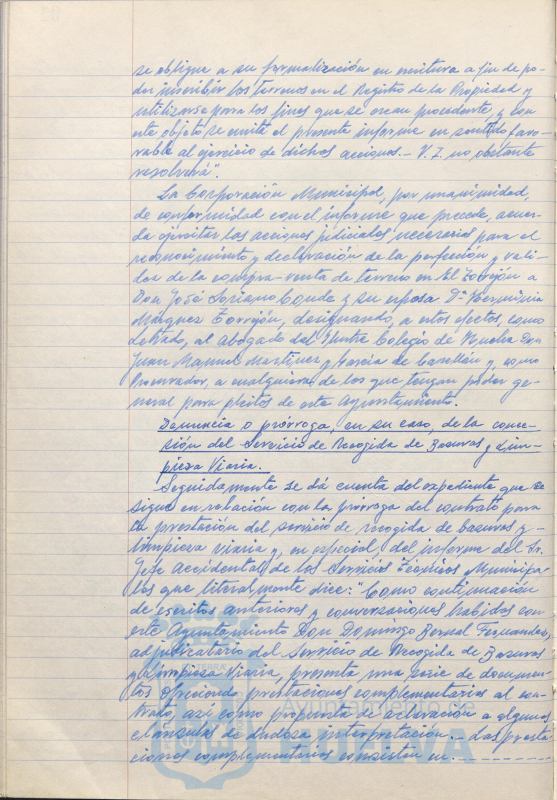 se obligue a su formalización en escritura a fin de po-
der inscribir los terrenos en el Registro de la Propiedad y
utilizarse para los fines que se crean procedente, y con
este objeto se emite el presente informe en sentido favo-
rable al ejercicio de dichas acciones.- V.I. no obstante
resolverá".
La Corporación Municipal, por unanimidad,
de conformidad con el informe que precede, acuer-
da ejercitar las acciones judiciales necesarias para el
reconocimiento y declaración de la perfección y vali-
dez de la compra-venta de terreno en El Torrejón a
Don José Soriano Conde y su esposa Dª Herminia
Marquez Torrejón, designando, a estos efectos, como
Letrado, al abogado del Iltre Colegio de Huelva Don
Juan Manuel Martinez y García de Castellón y, como
Procurador, a cualquiera de los que tengan poder ge-
neral para pleitos de este Ayuntamiento.
Denuncia o prórroga, en su caso, de la conce-
sión del Servicio de Recogida de Basuras y Lim-
pieza Viaria.
Seguidamente se dá cuenta del expediente que se
sigue en relación con la prórroga del contrato para
la prestación del servicio de recogida de basuras y
limpieza viaria y, en especial, del informe del Sr.
Jefe accidental de los Servicios Técnicos Municipa-
les que literalmente dice: "Como continuación
de escritos anteriores y conversaciones habidas con
este Ayuntamiento Don Domingo Bernal Fernandez,
adjudicatario del Servicio de Recogida de Basuras
y Limpieza Viaria, presenta una serie de documen-
tos ofreciendo prestaciones complementarias al con-
trato, así como propuesta de aclaración a algunas
cláusulas de dudosa interpretación.- Las presta-
ciones complementarias consisten en.-
Ayuntamiento de
HUELVA